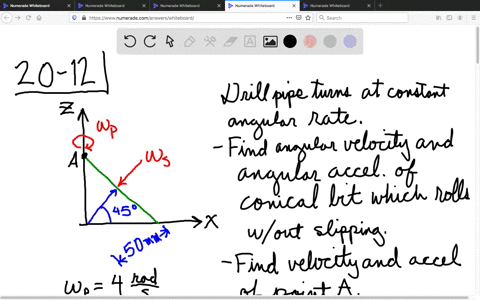 Numerade Whiteboard
Numerade Whiteboard
Numerade Whiteboard
Numerade Whiteboard
Numerade Whiteboard
https://www.numerade.com/answers/whiteboard/
20-12
Z
ωp
A
ωs
45°
X
50mm
ωp = 4 rad/s
Drill pipe turns at constant
angular rate.
- Find angular velocity and
angular accel. of
conical bit which rolls
w/out slipping.
- Find velocity and accel
of point A.